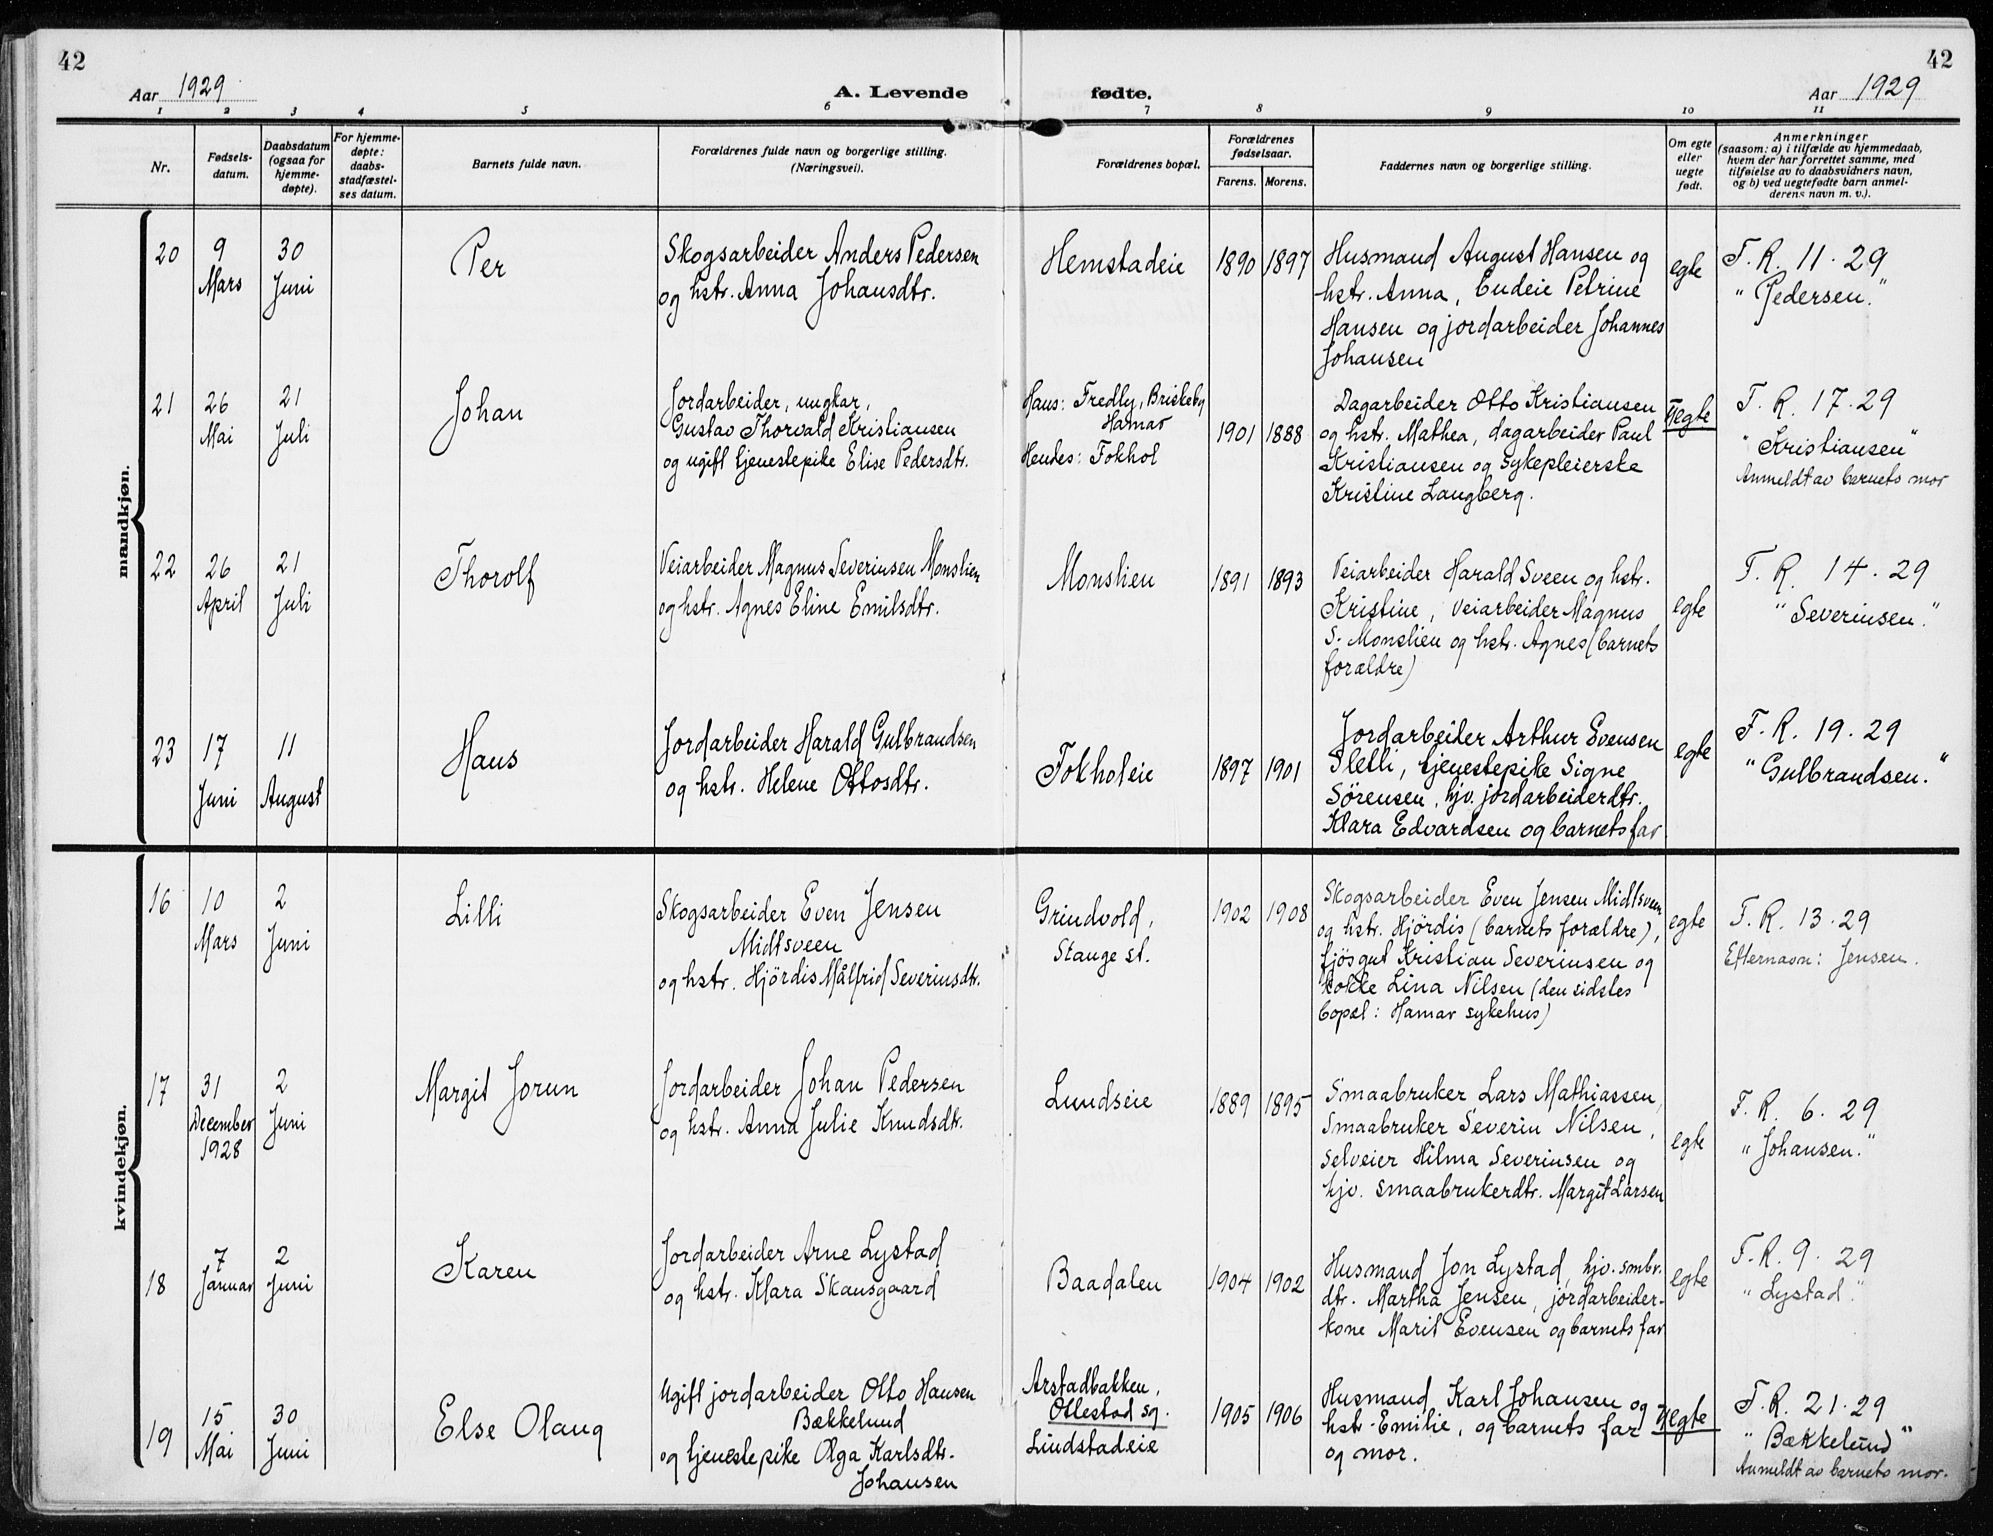 42
42
Aar 1929
A. Levende fødte.
Aar 1929
1 2 3 4 5 6 7 8 9 10 11
Nr.
Fødsels-
datum.
Daabsdatum
(ogsaa for
hjemme-
døpte).
For hjemme-
døpte:
daabs-
stadfæstel-
ses datum.
Barnets fulde navn.
Forældrenes fulde navn og borgerlige stilling.
(Næringsvei).
Forældrenes bopæl.
Forældrenes
fødselsaar.
Farens. Morens.
Faddernes navn og borgerlige stilling.
Om egte
eller
uegte
født.
Anmerkninger
(saasom: a) i tilfælde av hjemmedaab,
hvem der har forrettet samme, med
tilføielse av to daabsvidners navn,
og b) ved uegtefødte barn anmel-
derens navn m. v.).
mandkjøn.
20
9
Mars
30
Juni
Per
Skogsarbeider Anders Pedersen
og hstr. Anna Johansdtr.
Hemstadeie
1890 1897
Husmand August Hansen og
hstr. Anna, budeie Petrine
Hansen og jordarbeider Johannes
Johansen
egte
F. R. 11 - 29
" Pedersen."
21
26
Mai
21
Juli
Johan
Jordarbeider, ungkar,
Gustav Thorvald Kristiansen
og ugift tjenestepike Elise Pedersdtr.
Hans: Fredly, Briskeby
Hamar
Hendes: Fokhol
1901 1888
Dagarbeider Otto Kristiansen
og hstr. Mathea, dagarbeider Paul
Kristiansen og sykepleierske
Kristine Langberg.
Uegte
F. R. 17 - 29
" Kristiansen"
Anmeldt av barnets mor
22
26
April
21
Juli
Thorolf
Veiarbeider Magnus Severinsen Monslien
og hstr. Agnes Eline Emilsdtr.
Monslien
1891 1893
Veiarbeider Harald Sveen og hstr.
Kristine, veiarbeider Magnus
S. Monslien og hstr. Agnes (barnets
forældre)
egte
F. R. 14 - 29
" Severinsen."
23
17
Juni
11
August
Hans
Jordarbeider Harald Gulbrandsen
og hstr. Helene Ottosdtr.
Fokholeie
1897 1901
Jordarbeider Arthur Evensen
Sletli, tjenestepike Signe
Sørensen, hjv. jordarbeiderdtr.
Klara Edvardsen og barnets far
egte
F. R. 19 - 29
" Gulbrandsen."
kvindekjøn.
16
10
Mars
2
Juni
Lilli
Skogsarbeider Even Jensen
Midtsveen
og hstr. Hjördis Målfrid Severinsdtr.
Grindvold,
Stange st.
1902 1908
Skogsarbeider Even Jensen Midtsveen
og hstr. Hjördis (barnets forældre),
fjösgut Kristian Severinsen og
kokke Lina Nilsen (den sidstes
bopæl: Hamar sykehus)
egte
F. R. 13 - 29
Efternavn: Jensen.
17
31
December
1928
2
Juni
Margit Jorun
Jordarbeider Johan Pedersen
og hstr. Anna Julie Knudsdtr.
Lundseie
1889 1895
Smaabruker Lars Mathiassen,
Smaabruker Severin Nilsen,
selveier Hilma Severinsen og
hjv. smaabrukerdtr. Margit Larsen
egte
F. R. 6 - 29
" Johansen."
18
7
Januar
2
Juni
Karen
Jordarbeider Arne Lystad
og hstr. Klara Skansgaard
Baadalen
1904 1902
Husmand Jon Lystad, hjv. smbr.
dtr. Martha Jensen, jordarbeider-
kone Marit Evensen og barnets far
egte
F. R. 9 - 29
" Lystad."
19
15
Mai
30
Juni
Else Olaug
Ugift jordarbeider Otto Hansen
Bækkelund
og tjenestepike Olga Karlsdtr.
Johansen
Arstadbakken,
Ottestad sg.
Lindstadeie
1905 1906
Husmand Karl Johansen og
hstr. Emilie, og barnets far
og mor.
Uegte
F. R. 21 - 29
" Bækkelund"
Anmeldt av barnets mor.